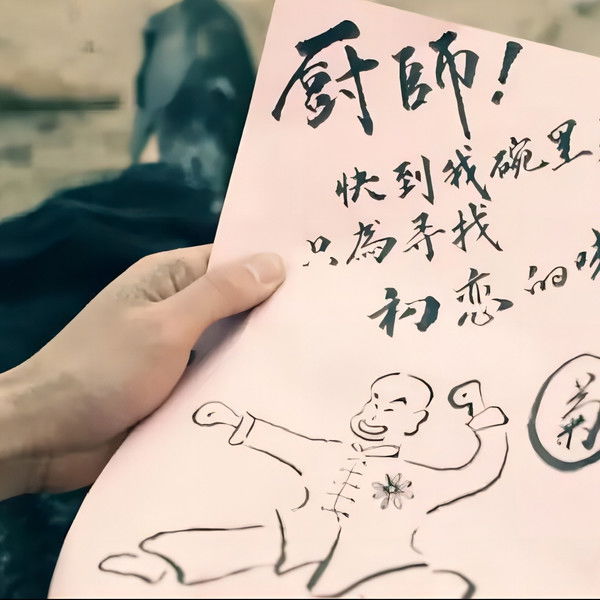 厨師!
快到我碗里
只為尋找
初恋的味
菊